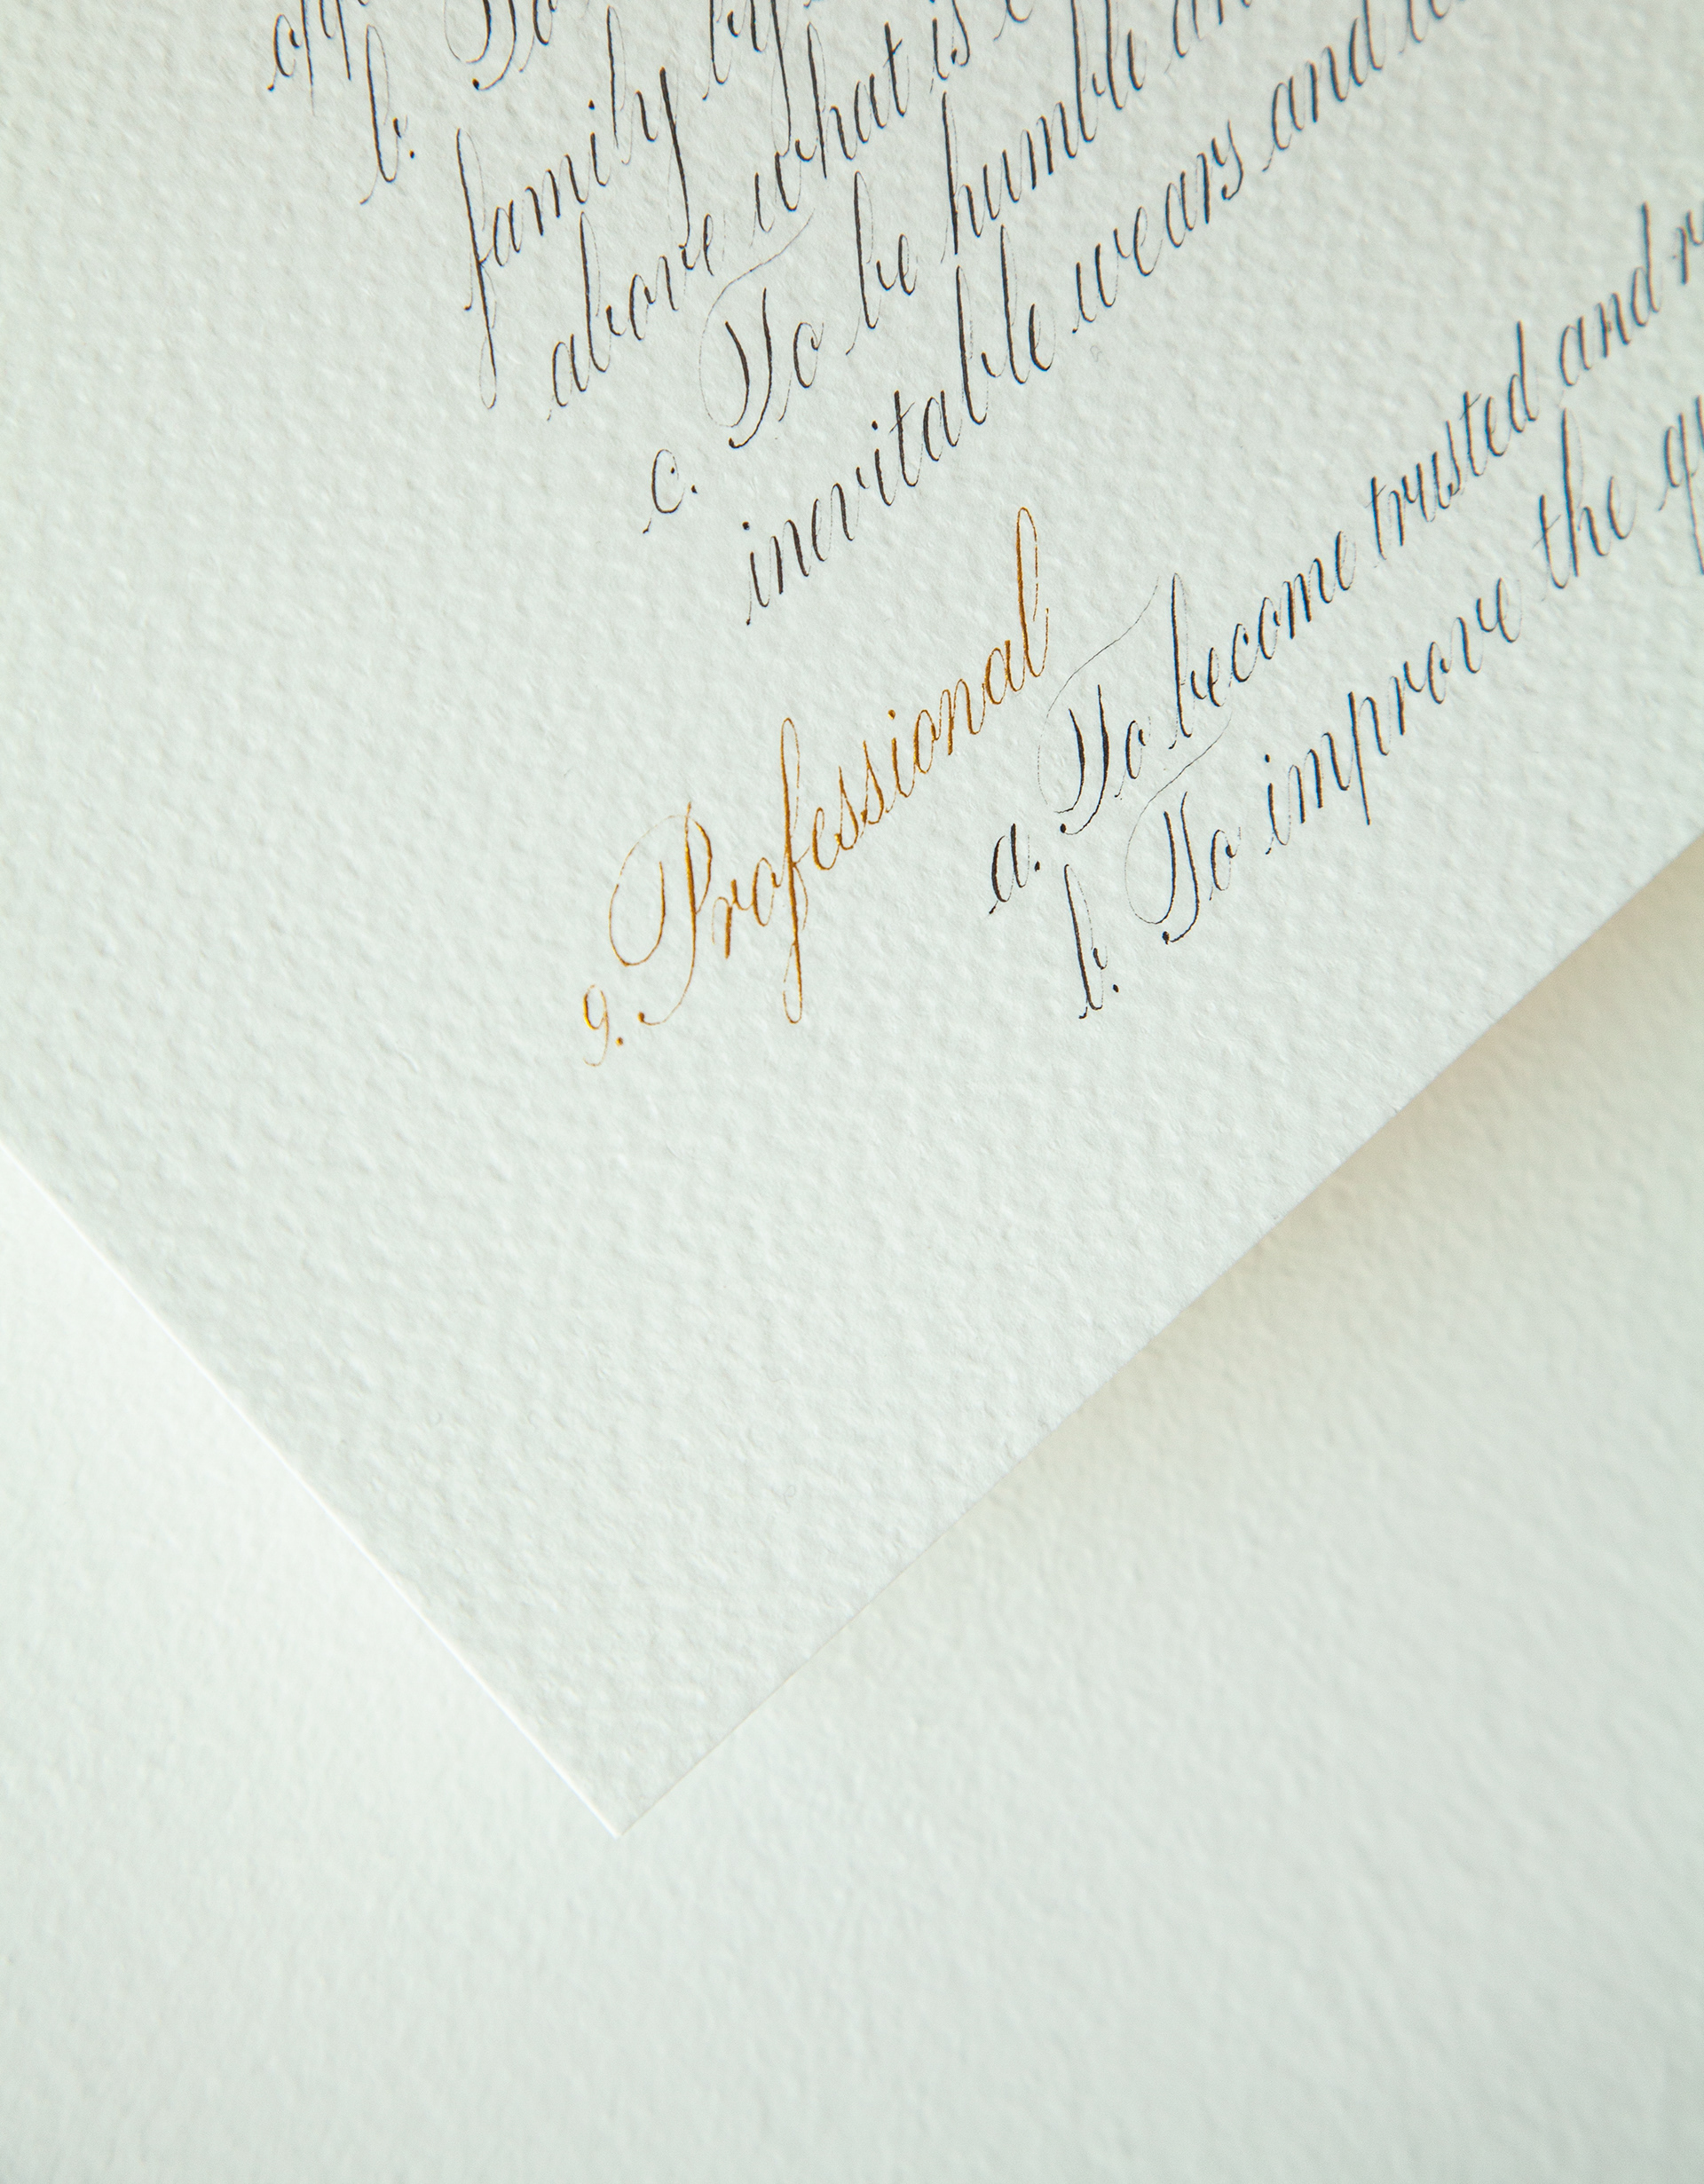 b. To
family by
above what is
c. To be humble
inevitable wears and
9. Professional
a. To become trusted and
b. To improve the